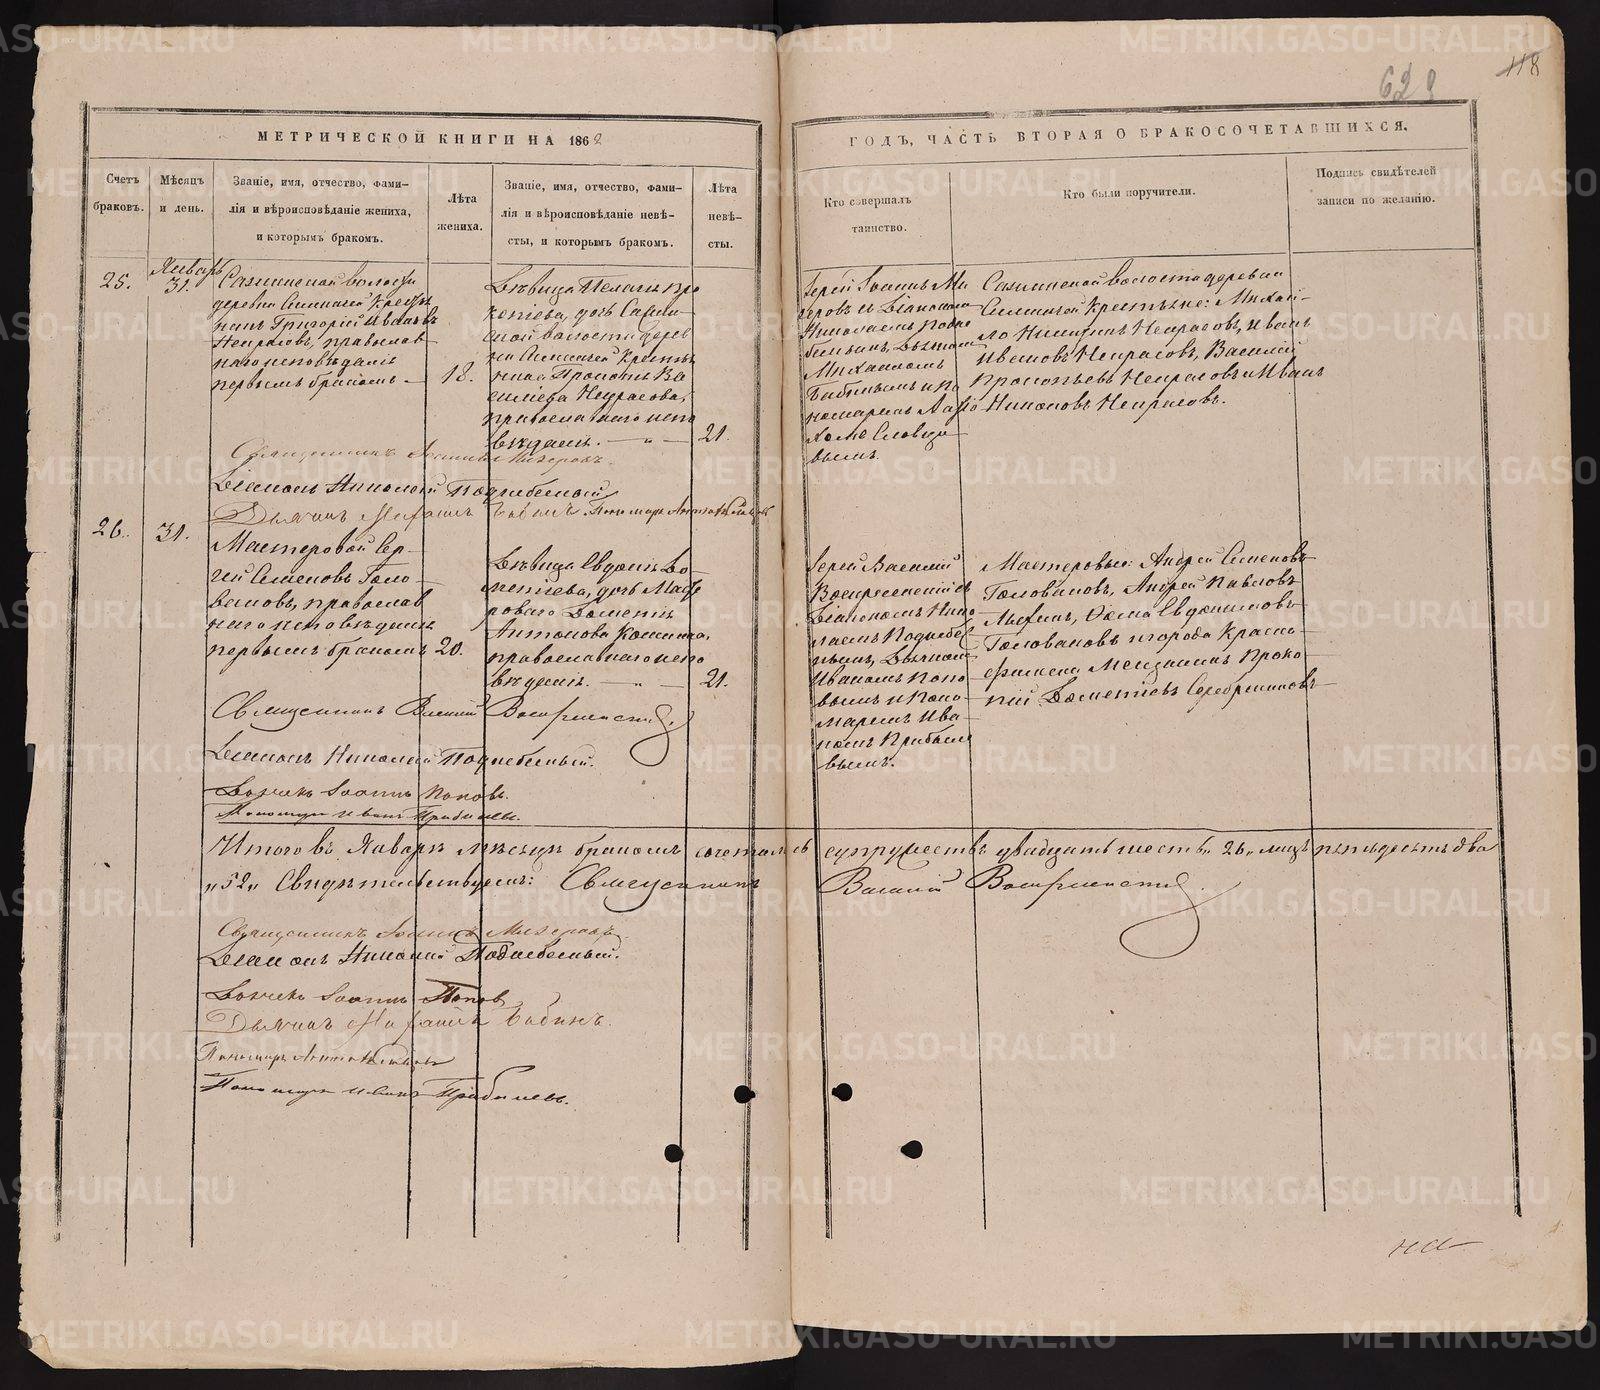 629
118
МЕТРИЧЕСКОЙ КНИГИ НА 1862
ГОДЪ, ЧАСТЬ ВТОРАЯ О БРАКОСОЧЕТАВШИХСЯ.
Счетъ
браковъ.
Мѣсяцъ
и день.
Званіе, имя, отчество, фами-
лія и вѣроисповѣданіе жениха,
и которымъ бракомъ.
Лѣта
жениха.
Званіе, имя, отчество, фами-
лія и вѣроисповѣданіе невѣ-
сты, и которымъ бракомъ.
Лѣта
невѣ-
сты.
Кто совершалъ
таинство.
Кто были поручители.
Подпись свидѣтелей
записи по желанію.
25.
Январь
31.
волости
деревни крестья
нинъ Григорій Ивановъ
Некрасовъ, православ
наго исповѣданія
первымъ бракомъ
18.
Дѣвица Пелагея Про
копіева, дочь
ской волости дерев
ни крестья
нина Прокопія Ва
сильева Некрасова,
православнаго испо
вѣданія. — „ —
21.
Іерей Іоаннъ Ми
геровъ съ Діакономъ
Николаемъ Подне
беснымъ, Дьячкомъ
Михаиломъ
Бабинымъ и По
номаремъ
Словцо
вымъ.
волости деревни
крестьяне: Михай-
ло Никитинъ Некрасовъ, Иванъ
Ивановъ Некрасовъ, Василій
Прокопьевъ Некрасовъ и Иванъ
Некрасовъ.
Священникъ Іоаннъ Мигеровъ.
Діаконъ Николай Поднебесный
Дьячикъ Михаилъ Бабинъ. Пономарь
26.
31.
Мастеровой Сер-
гей Семеновъ Голо-
вановъ, православ
наго исповѣданія
первымъ бракомъ
20.
Дѣвица Евдокія До-
метіева, дочь Масте
роваго Дометія
Антонова
православнаго испо
вѣданія. — „ —
21.
Іерей Василій
Воскресенскій съ
Діакономъ Нико
лаемъ Поднебес
нымъ, Дьячкомъ
Иваномъ Попо
вымъ и Поно
маремъ Ива
номъ Прибыле
вымъ.
Мастеровые: Андрей Семеновъ
Головановъ, Андрей Павловъ
Ѳома Евдокимовъ
Головановъ и города Красно-
уфимска Мещанинъ Проко-
пій Дометіевъ Серебренниковъ
Священникъ Василій Воскресенскій.
Діаконъ Николай Поднебесный.
Дьячекъ Іоаннъ Поповъ.
Пономарь Иванъ Прибылевъ.
Итого въ Январѣ мѣсяцѣ бракомъ сочеталось супружествъ двадцать шесть „26„ лицъ пятьдесятъ два
„52„ Свидѣтельствуемъ: Священникъ Василій Воскресенскій
Священникъ Іоаннъ Мигеровъ
Діаконъ Николай Поднебесный.
Дьячекъ Іоаннъ Поповъ
Дьячикъ Михаилъ Бабинъ.
Пономарь
Пономарь Иванъ Прибылевъ.
METRIKI.GASO-URAL.RU